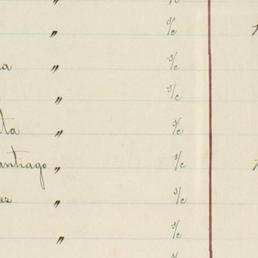 " S/c
a " S/c
" S/c
ta " S/c
antiago " S/c
uz " S/c
" S/c
S/c